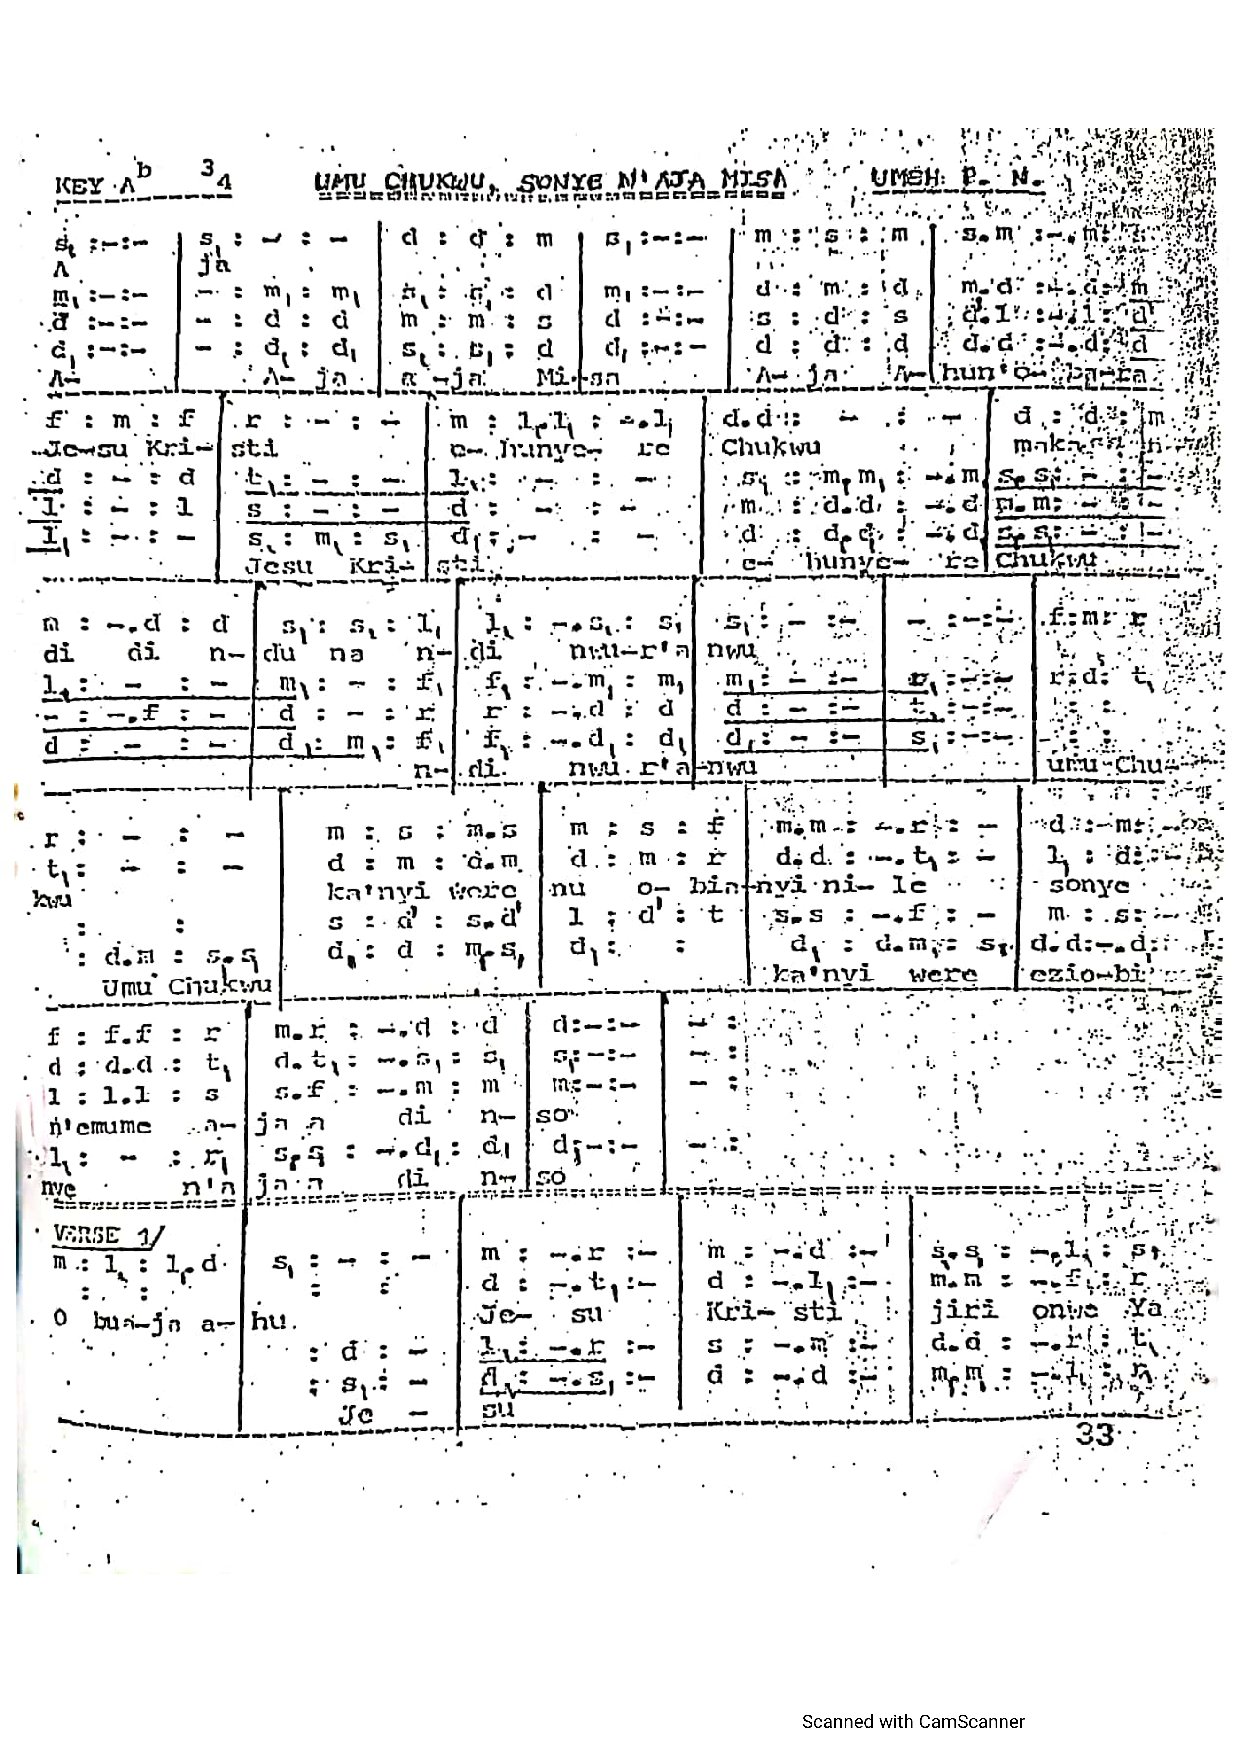 KEY Ab 3 4 UMU CHUKWU, SONYE N'AJA MISA UMEH P. N.
s, :-:- | s, : - : - | d : d : m | s, :-:- | m : s : m | s.m :-.m:
A ja
m, :-:- | - : m, : m, | s, : s, : d | m, :-:- | d : m : d | m.d :-.d : m
d :-:- | - : d : d | m : m : s | d :-:- | s : d' : s | d'.l :-.l : d'
d, :-:- | - : d, : d, | s, : s, : d | d, :-:- | d : d : d | d.d :-.d : d
A- A- ja a -ja Mi-sa A- ja A- hun'o- ba-ra
f : m : f | r : - : - | m : l,.l, : -.l, | d.d : - : - | d : d : m
Je-su Kri- sti e- hunye- re Chukwu maka
d : - : d | t, : - : - | l, : - : - | s, : m,.m, : -.m, | s,.s, : - : -
l : - : l | s : - : - | d : - : - | m : d.d : -.d | m.m : - : -
l, : - : - | s, : m, : s, | d, : - : - | d : d.d : -.d | s,.s, : - : -
Jesu Kri- sti e- hunye- re Chukwu
m : -.d : d | s, : s, : l, | l, : -.s, : s, | s, : - :- | - :-:- | f:m: r
di di n- du na n- di nwu-r'a nwu
l, : - : - | m, : - : f, | f, : -.m, : m, | m, : - :- | r, :-:- | r:d: t,
- : -.f : - | d : - : r | r : -.d : d | d : - :- | t, :-:- | : :
d : - : - | d, : m, : f, | f, : -.d, : d, | d, : - :- | s, :-:-
n- di nwu r'a-nwu umu-Chu-
r : - : - | m : s : m.s | m : s : f | m.m : -.r : - | d :-m:
t, : - : - | d : m : d.m | d : m : r | d.d : -.t, : - | l, : d:-
kwu ka'nyi were nu o- bia-nyi ni- le sonye
: : | s : d' : s.d' | l : d' : t | s.s : -.f : - | m : s:-
: d.m : s.s, | d, : d : m,.s, | d, : : | d, : d.m, : s, | d.d:-.d:
Umu Chukwu ka'nyi were ezio-bi
f : f.f : r | m.r : -.d : d | d:-:- | - :
d : d.d : t, | d.t, : -.s, : s, | s,:-:- | - :
l : l.l : s | s.f : -.m : m | m:-:- | - :
n'emume a- ja a di n- so
l, : - : r, | s,.s, : -.d, : d, | d,:-:- | - :
nye n'a ja a di n- so
VERSE 1/
m : l, : l,.d | s, : - : - | m : -.r :- | m : -.d :- | s,.s, : -.l, : s,
: : | : : | d : -.t, :- | d : -.l, :- | m.m : -.f, : r
O bua-ja a- hu. Je- su Kri- sti jiri onwe Ya
: d : - | l, : -.r :- | s : -.m :- | d.d : -.r : t,
: s, : - | : -.s, :- | d : -.d :- | m,.m, : -.l, :
Je - su
33
Scanned with CamScanner